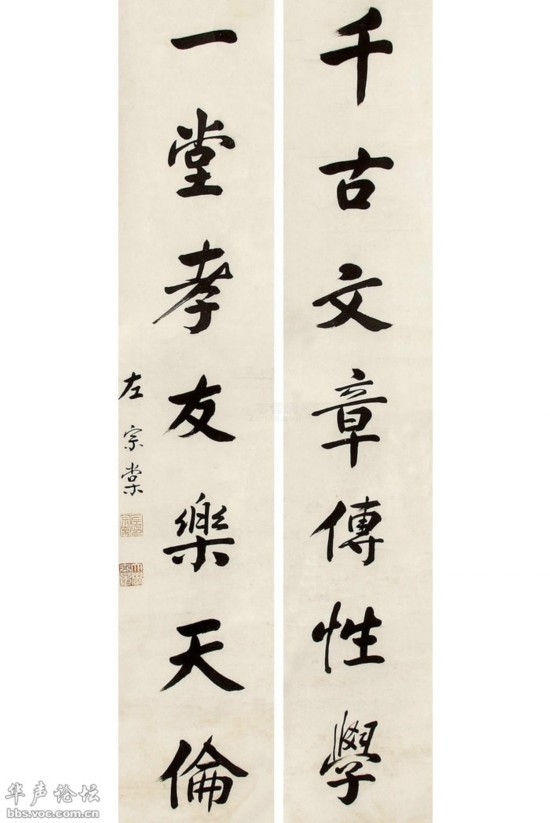 千古文章傳性學
一堂孝友樂天倫
左宗棠
华声论坛
bbs.voc.com.cn